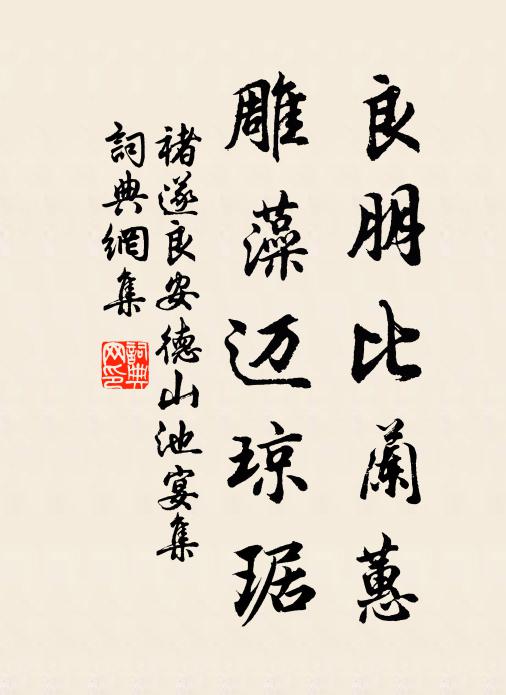 良朋比蘭蕙
雕藻迈琼琚
褚遂良安德山池宴集
詞典網集
詞典网印